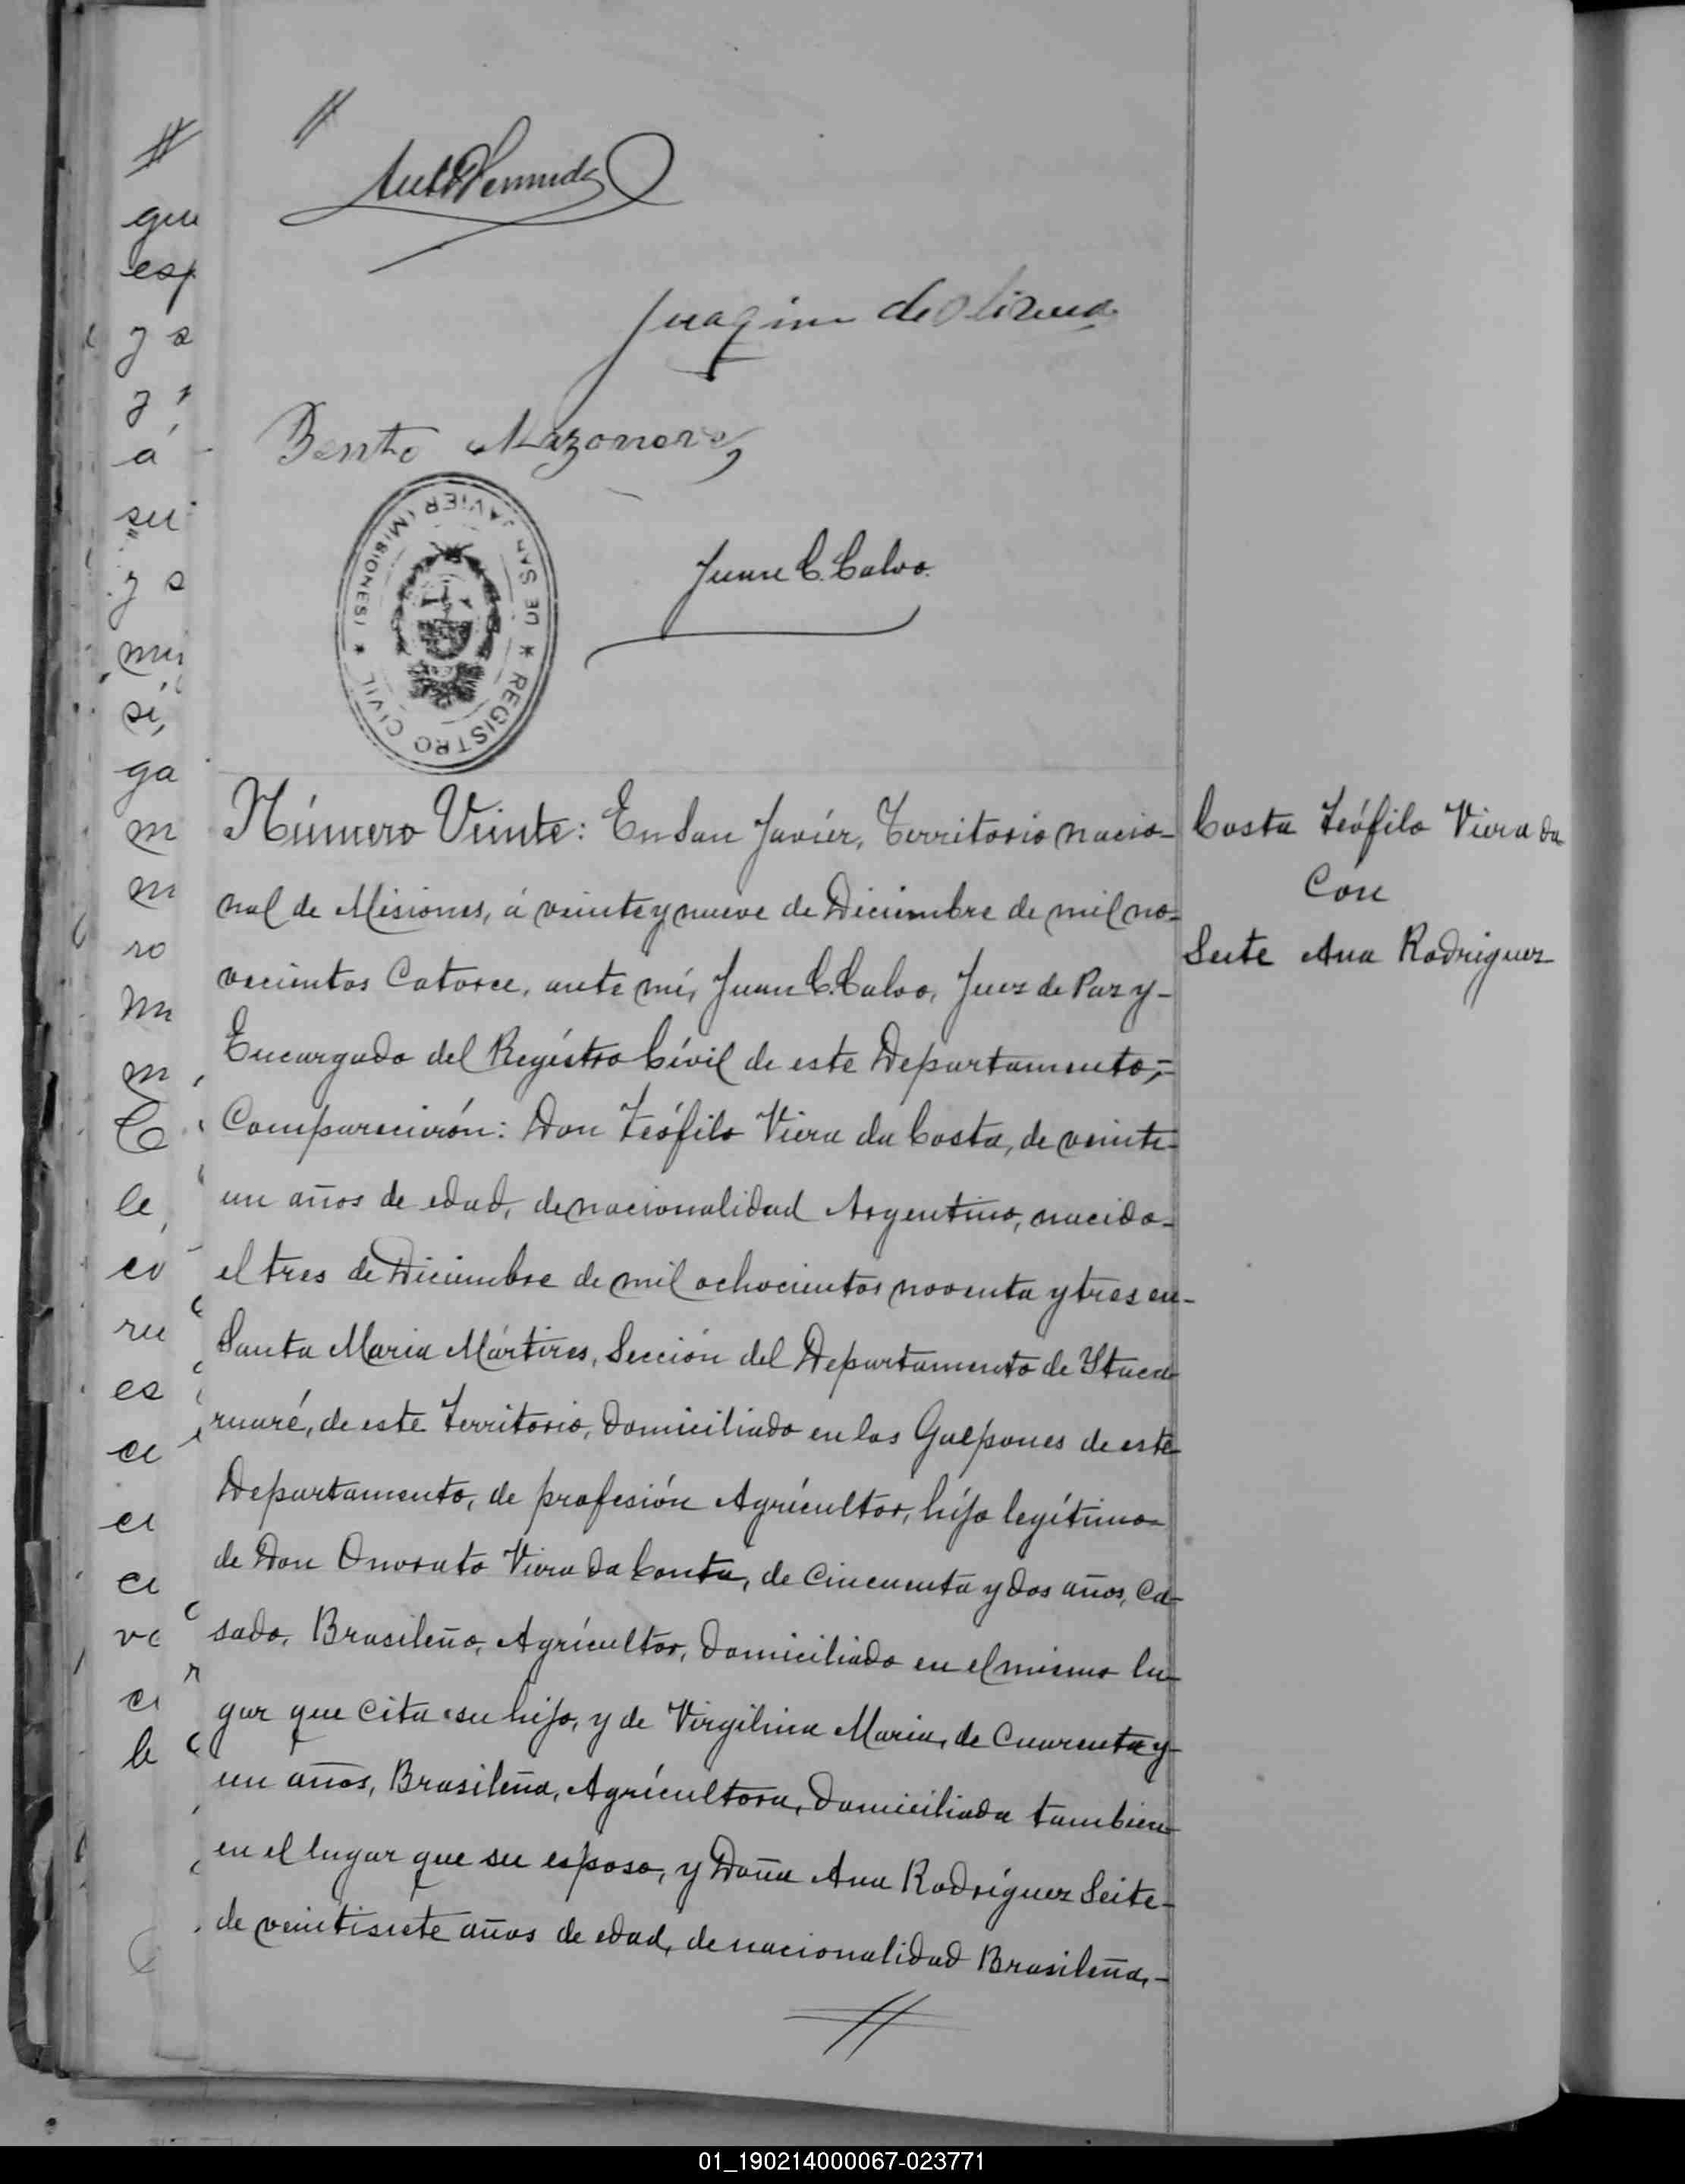 Juaqin de Oliveira
Bento
DE SAN JAVIER (MISIONES) * REGISTRO CIVIL *
Juan C. Calvo.
Número Veinte: En San Javiér, Territorio nacio-
nal de Misiones, á veinte y nueve de Diciembre de mil no-
vecientos Catorce, ante mí, Juan C. Calvo, Juez de Paz y-
Encargado del Regístro Cívil de este Departamento;=
Comparecierón: Don Teófilo Viera da Costa, de veinte-
un años de edad, de nacionalidad Argentino, nacido-
el tres de Diciembre de mil ochocientos noventa y tres en-
Santa Maria Mártires, Sección del Departamento de Ytaca-
ruaré, de este Territorio, domiciliado en los Galpones de este-
Departamento, de profesión Agrícultor, híjo legítimo-
de Don Onorato Viera da Consta, de Cincuenta y dos años, Ca-
sado, Brasileño, Agrícultor, domiciliado en el mismo lu-
gar que cita su hijo, y de Virgilina Maria, de Cuarenta y-
un años, Brasileña, Agrícultora, domiciliada tambien-
en el lugar que su esposo, y Doña Ana Rodríguez Seite-
de veintisiete años de edad, de nacionalidad Brasileña,-
Costa Teófilo Viera da
Con
Seite Ana Rodriguez
01_190214000067-023771